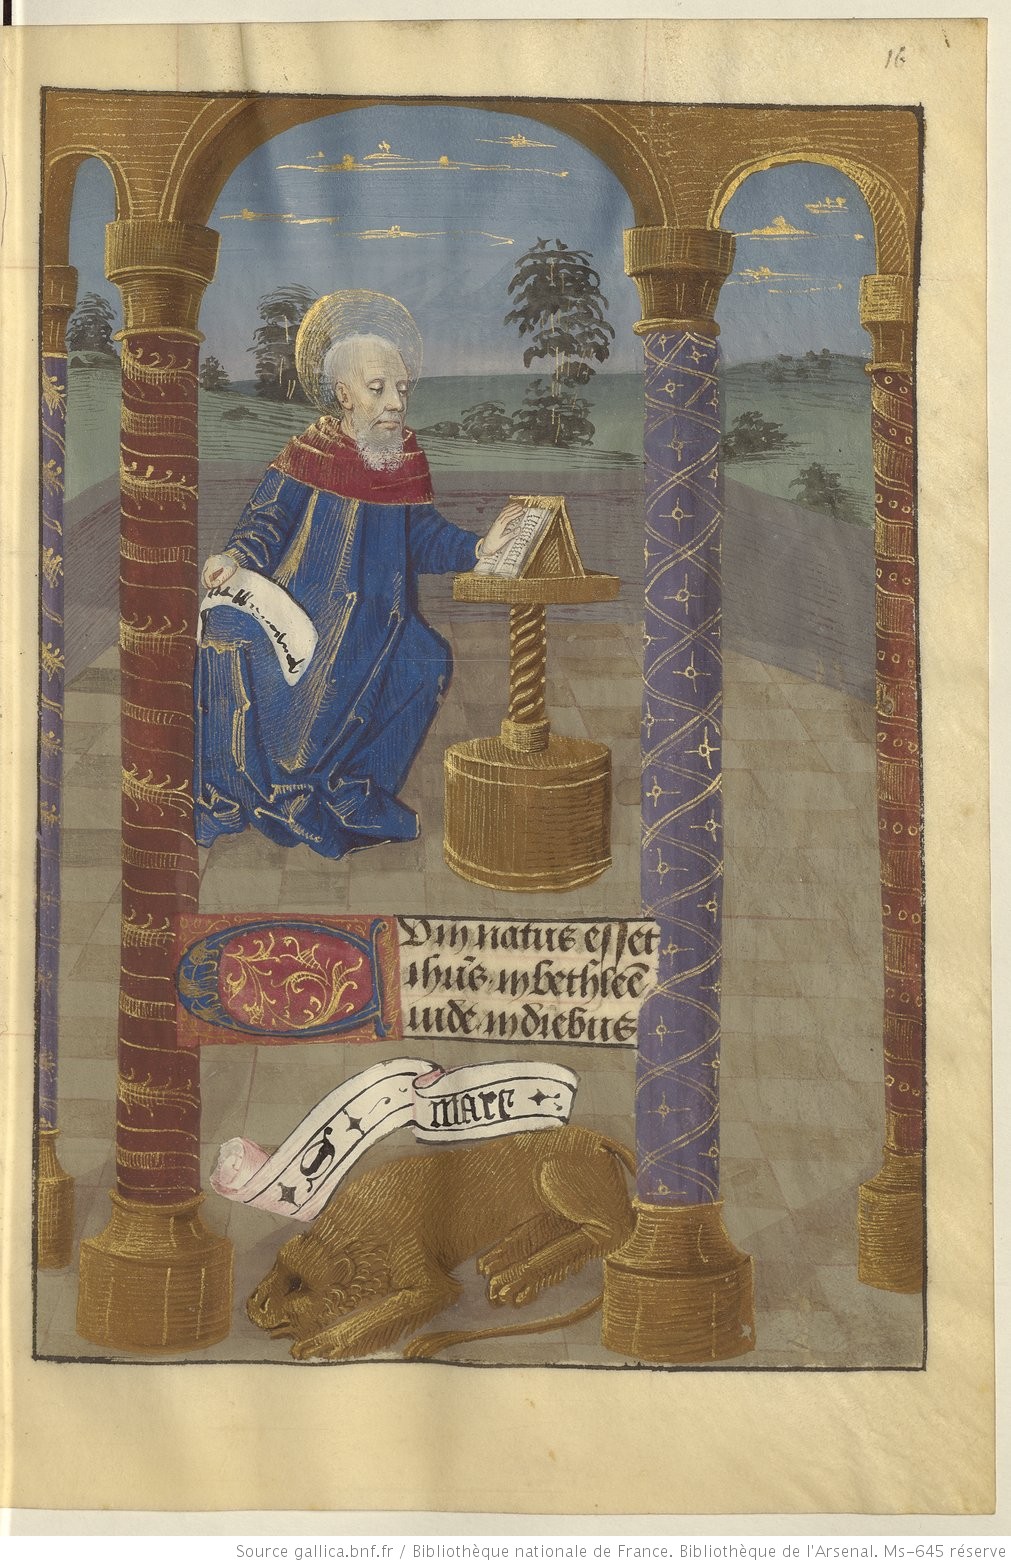 16
Cum natus esset
ihũs. in bethleẽ
iude. in diebus
S marc
Source gallica.bnf.fr / Bibliothèque nationale de France. Bibliothèque de l'Arsenal. Ms-645 réserve